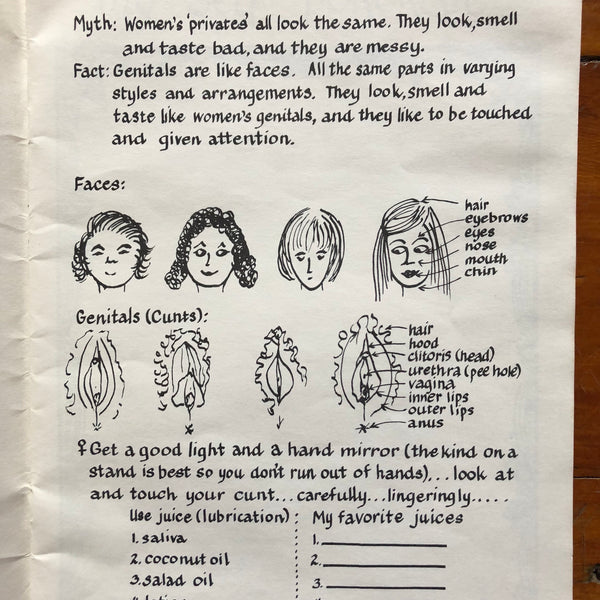 Myth: Women's 'privates' all look the same. They look, smell
and taste bad, and they are messy.
Fact: Genitals are like faces. All the same parts in varying
styles and arrangements. They look, smell and
taste like women's genitals, and they like to be touched
and given attention.
Faces:
hair
eyebrows
eyes
nose
mouth
chin
Genitals (Cunts):
hair
hood
clitoris (head)
urethra (pee hole)
vagina
inner lips
outer lips
anus
♀ Get a good light and a hand mirror (the kind on a
stand is best so you don't run out of hands)...look at
and touch your cunt...carefully...lingeringly.....
Use juice (lubrication): My favorite juices
1. saliva 1.
2. coconut oil 2.
3. salad oil 3.